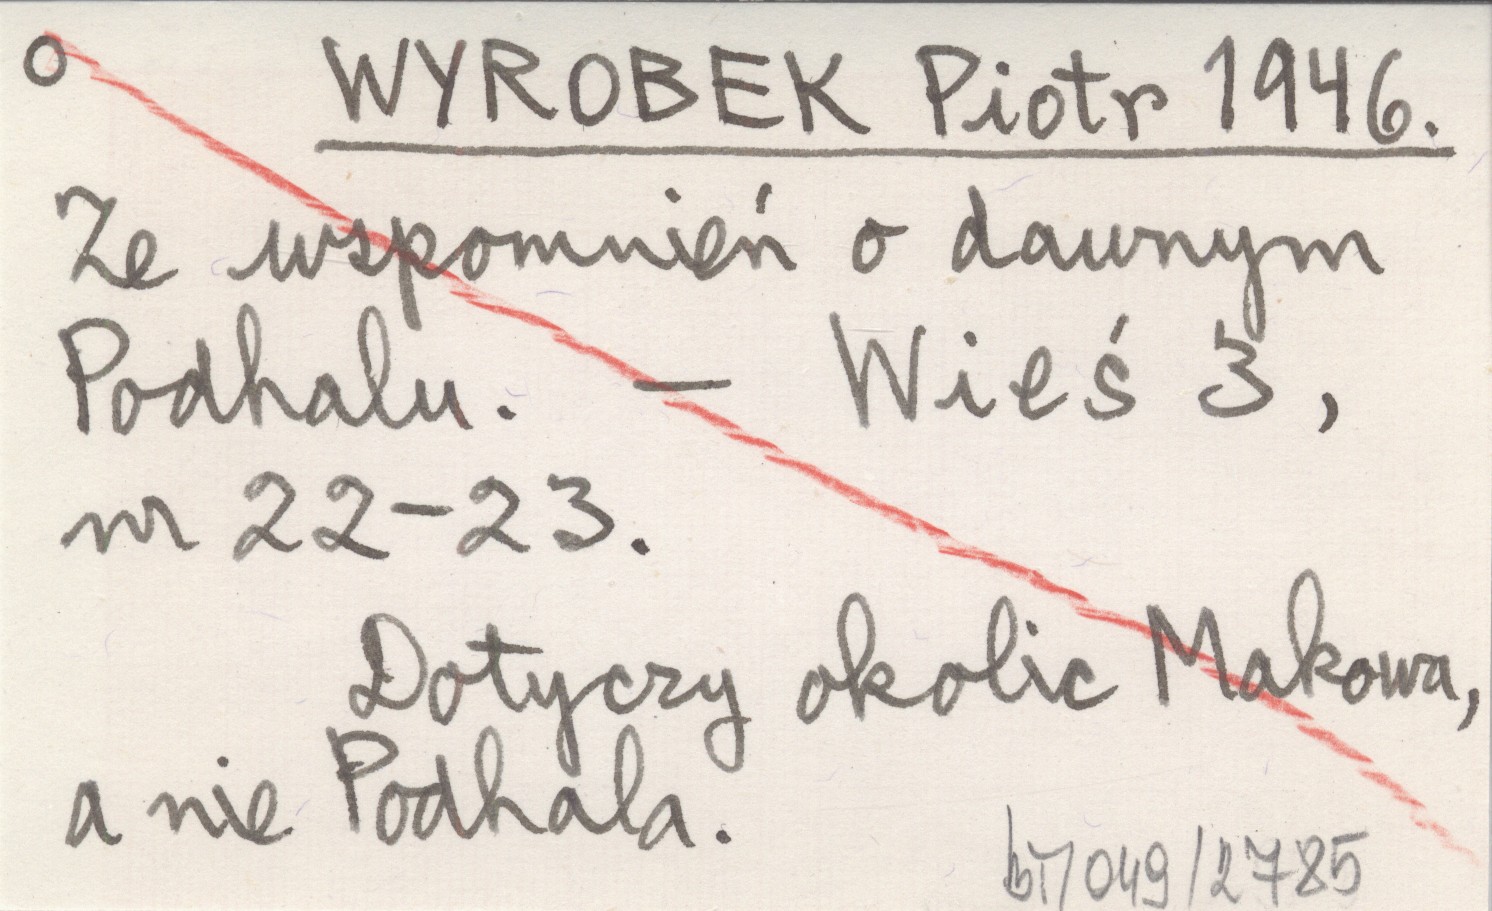 o WYROBEK Piotr 1946.
Ze wspomnień o dawnym
Podhalu. — Wieś 3,
nr 22-23.
Dotyczy okolic Makowa,
a nie Podhala.
/049/2785